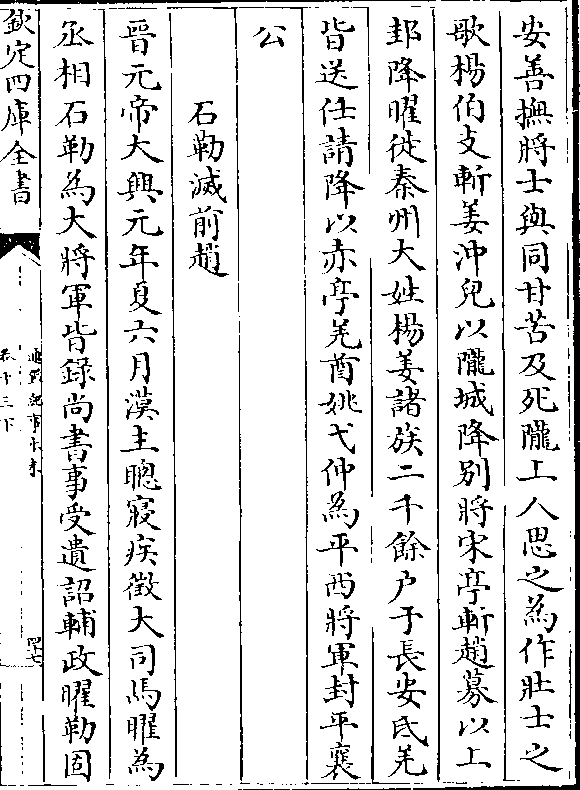 安善撫將士與同甘苦及死隴上人思之為作壯士之
歌楊伯支斬姜沖兒以隴城降别將宋亭斬趙募以上
邽降曜徙秦州大姓楊姜諸族二千餘户于長安氐羌
皆送任請降以赤亭羌酋姚弋仲為平西將軍封平襄
公
石勒滅前趙
晉元帝大興元年夏六月漢主聰寢疾徵大司馬曜為
丞相石勒為大將軍皆錄尚書事受遺詔輔政曜勒固
欽定四庫全書
通鑑紀事本末
卷十三下
四十七